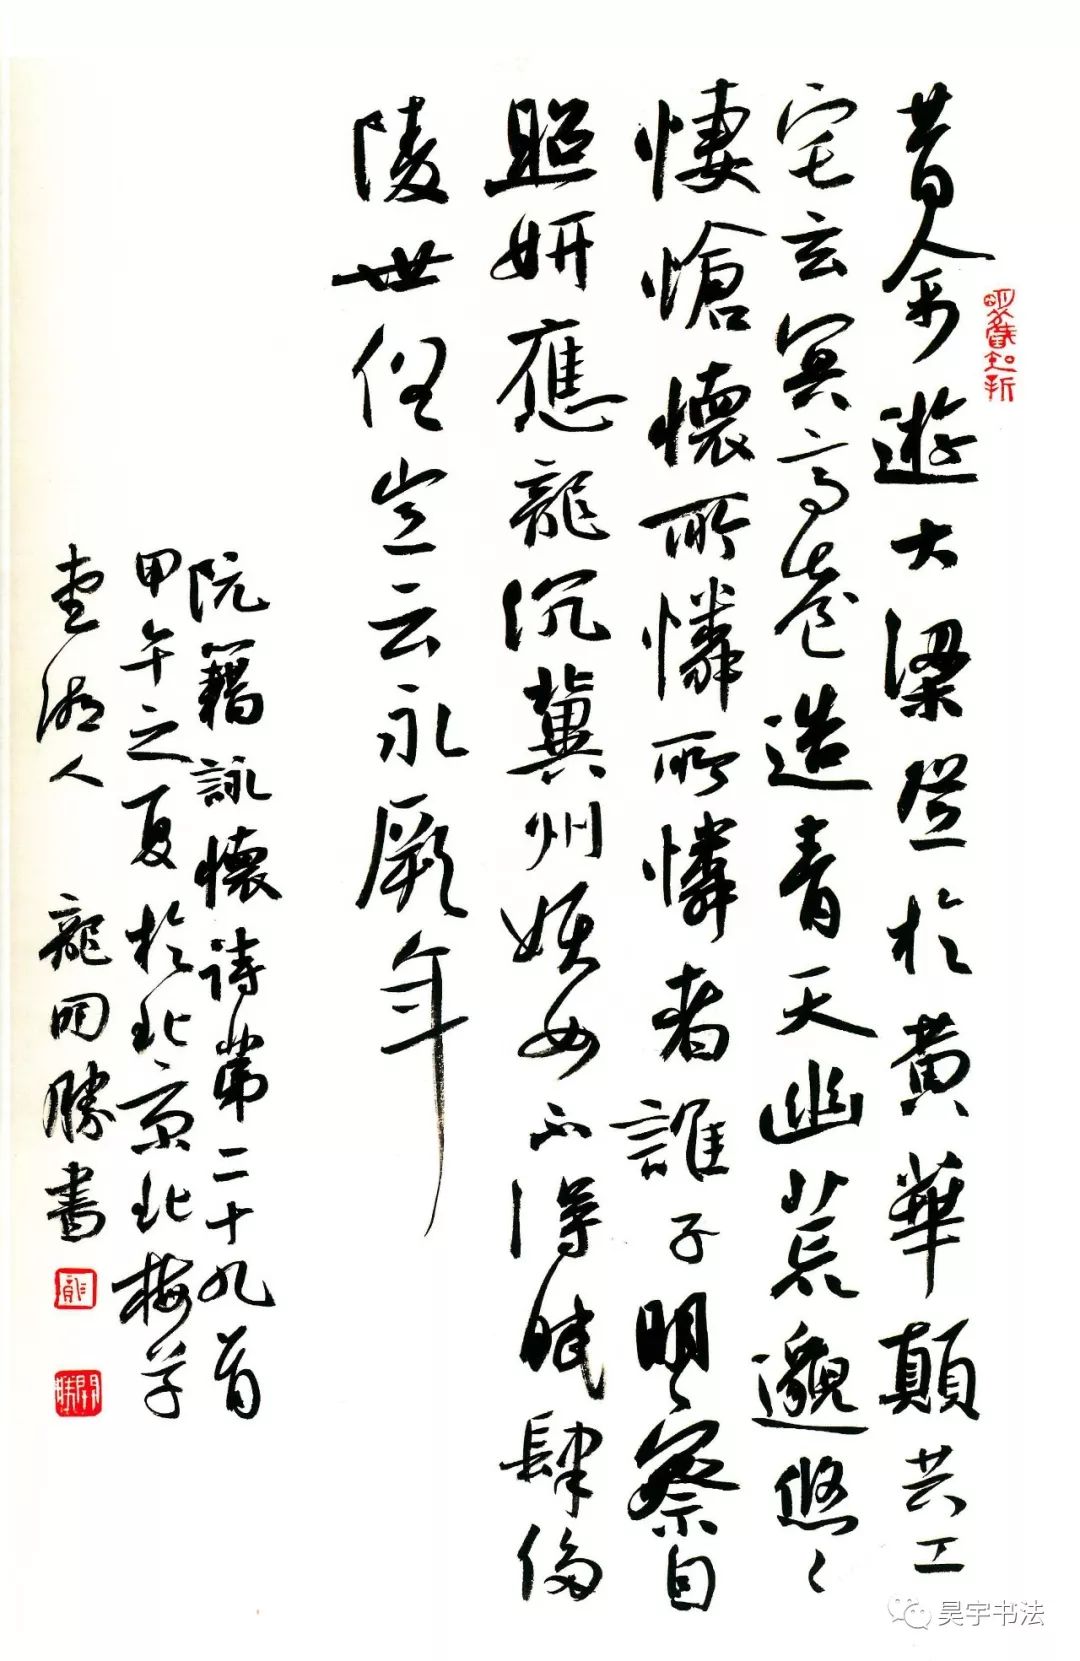 昔余遊大梁登於黄華顛共工
宅玄冥高臺造青天幽荒邈悠〻
悽愴懷所憐所憐者誰子明察自
照妍應龍沉冀州妖女不得眠肆侈
陵世俗豈云永厥年
阮籍詠懷诗第二十九首
甲午之夏於北京北梅草
堂湖人 龍開勝書
龍
開勝
昊宇书法